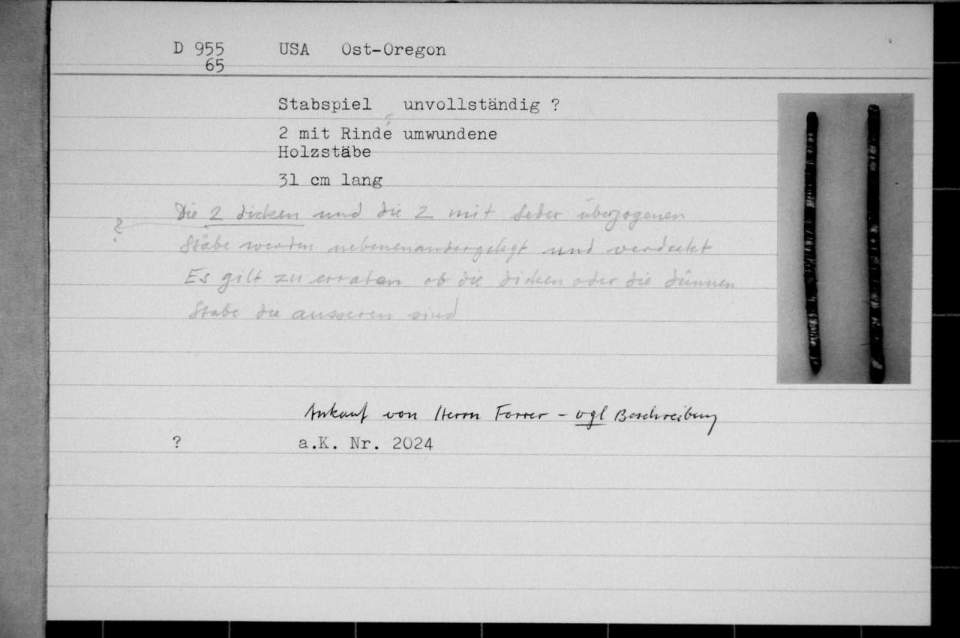 D 955 USA Ost-Oregon
65
Stabspiel unvollständig ?
2 mit Rinde umwundene
Holzstäbe
31 cm lang
? Die 2 dicken und die 2 mit Leder überzogenen
Stäbe werden nebeneinandergelegt und verdeckt
Es gilt zu erraten ob die dicken oder die dünnen
Stäbe die ausseren sind
Ankauf von Herrn Forrer - vgl Beschreibung
? a.K. Nr. 2024